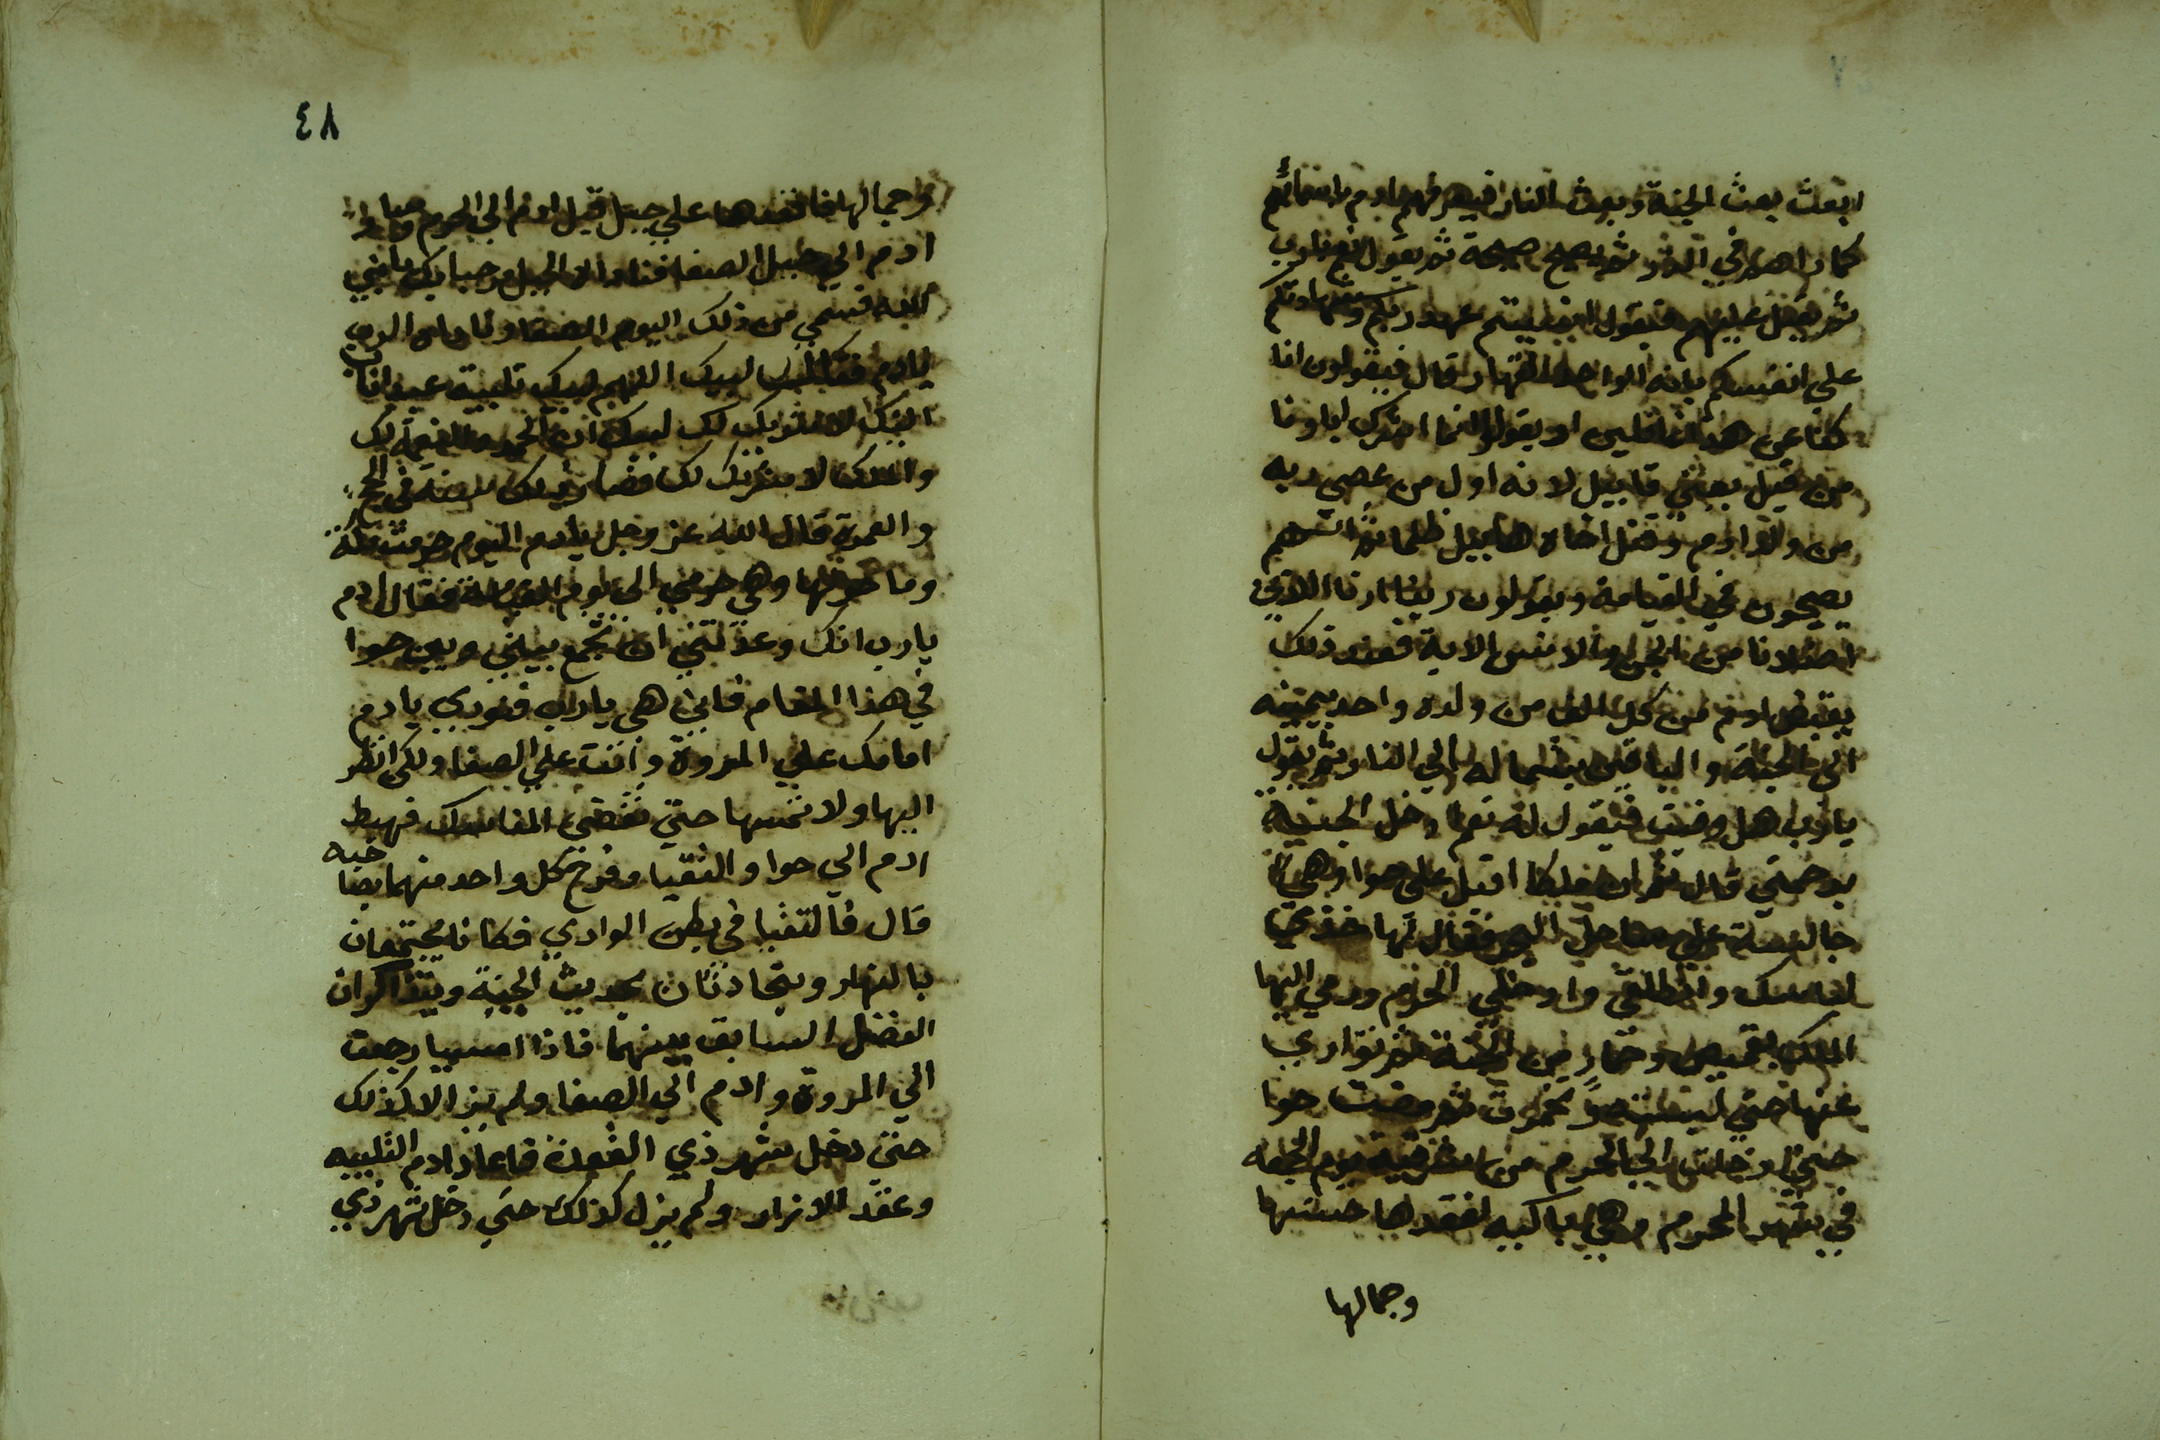 ابعث بعث الجنة وبعث النار فيعرفهم ادم باسمائهم
كما راهم في الذر ثم يصيح صيحة ثم يقول نعم يارب
ثم يقبل عليهم فيقول انسيتم عهد ربكم وشهادتكم
على انفسكم بانه الواحد القهار قال فيقولون انا
كنا عن هذا غافلين او يقولوا انما اشرك اباونا
من قبل يعني قابيل لانه اول من عصى ربه
من ولد ادم وقتل اخاه هابيل ظلما ثم انهم
يصيحون في القيامة ويقولون ربنا ارنا الذين
اضلانا من الجن والانس الاية فعند ذلك
يقبض ادم من كل الف من ولده واحد بيمينه
الى الجنة والباقين بشماله الى النار ثم يقول
يارب هل وفيت فيقول له نعم ادخل الجنة
برحمتي قال ثم ان ملكا اقبل على حوا وهي
جالسة على ساحل البحر فقال لها خذي
لباسك وانطلقي وادخلي الحرم ورمي اليها
الملك بقميص وخمار من الجنة ثم توارى
عنها حتى لبسته وتخمرت ثم مضت حوا
حتى دخلت الى الحرم من شرقيه يوم الجمعه
في شهر المحرم وهي باكيه لفقدها حسنها
وجمالها
٤٨
وجمالها فاقعدها على جبل قيل ادم الى الحرم
ادم الى جبل الصفا فناداه الجبل مرحبا بك ياصفي
الله فسمي من ذلك اليوم الصفا وناداه الرب
ياادم فقال لبيك لبيك اللهم لبيك تلبية عبد
لبيك لا شريك لك لبيك ان الحمد والنعمة لك
والملك لا شريك لك فصار ذلك سنة في الحج
والعمرة قال الله عز وجل ياادم اليوم حرمت مكة
وما حولها وهي حرمي الى يوم القيامة فقال ادم
يارب انك وعدتني ان تجمع بيني وبين حوا
في هذا المقام فاين هي يارب فنودي يادم
امامك على المروة وانت على الصفا ولكن انظر
اليها ولا تمسها حتى تقضي المناسك فهبط
ادم الى حوا والتقيا وفرح كل واحد منهما بصاحبه
قال فالتقيا في بطن الوادي فكانا يجتمعان
بالنهار ويتحادثان بحديث الجنة ويتذاكران
الفضل السابق بينهما فاذا امسيا رجعت
الى المروة وادم الى الصفا ولم يزالا كذلك
حتى دخل شهر ذي القعدة فاعاد ادم التلبيه
وعقد الازار ولم يزل كذلك حتى دخل شهر ذي